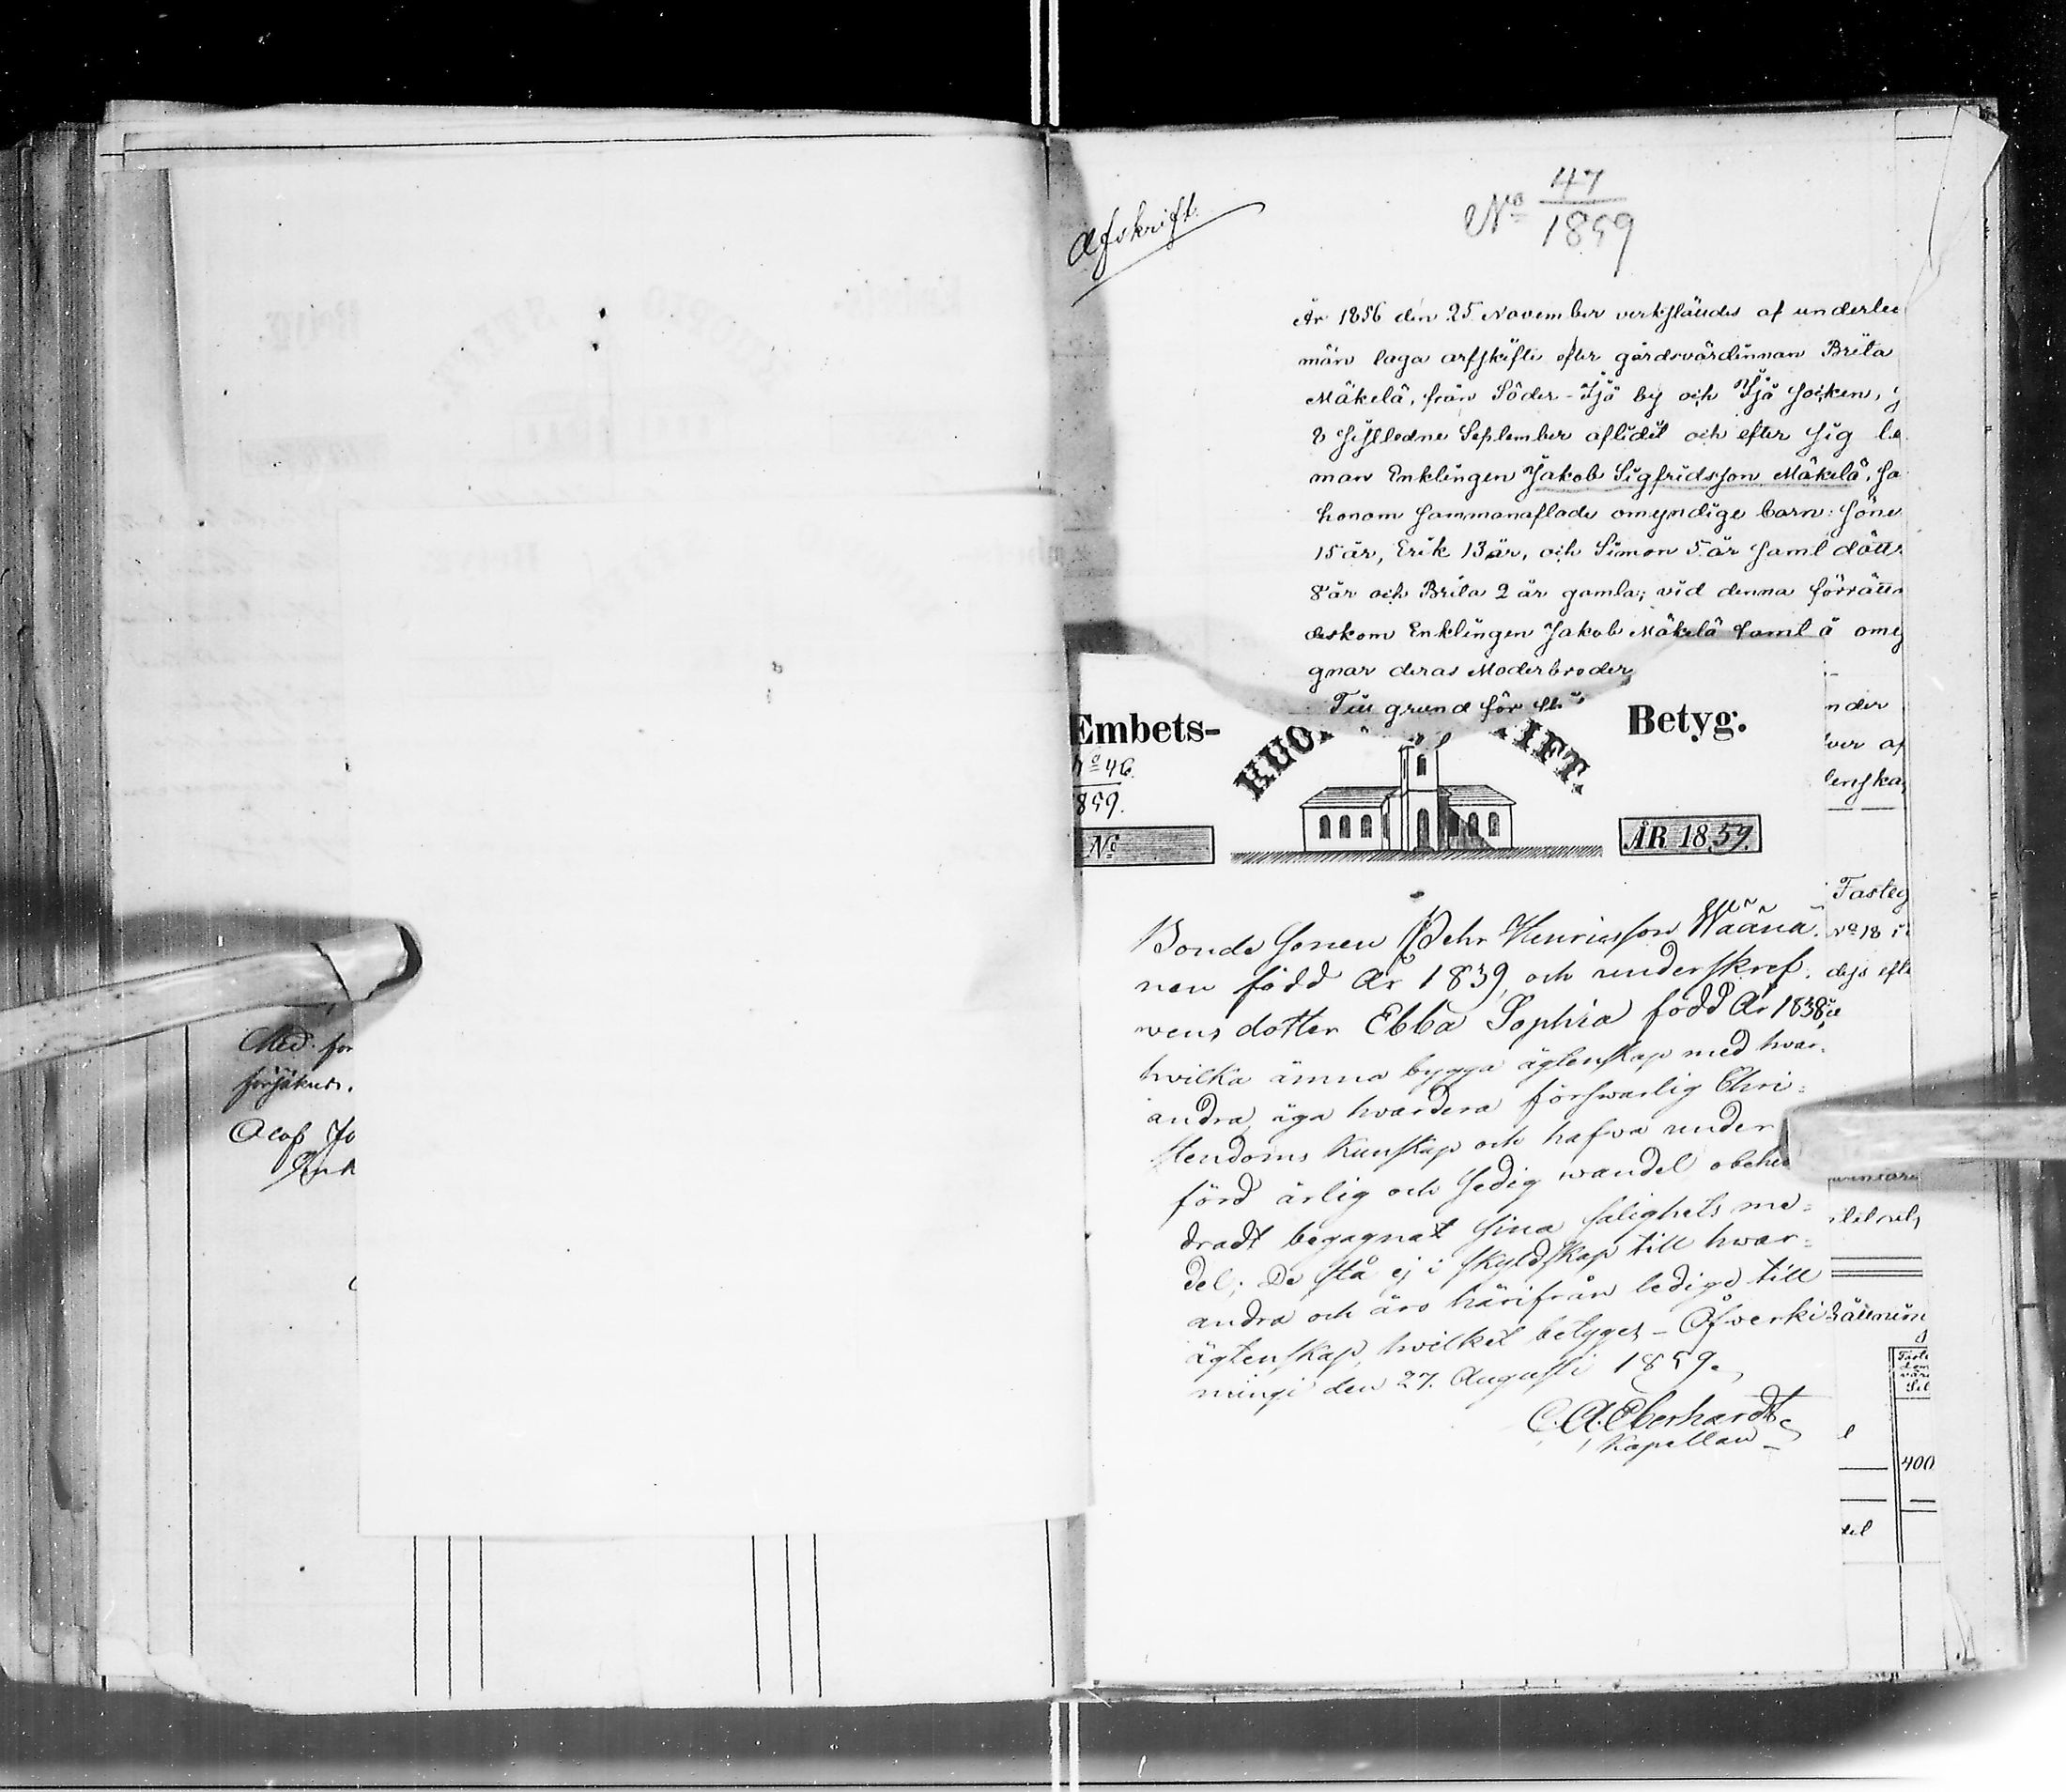 Med för
försäkrar.
Olof Jo
Afskrift.
No 47
1859
År 1856 den 25 November verkstäldes af underte
män laga arfskifte efter gårdsvärdinnan Brita
Mäkelä, från Söder-Ijå by och Ijå socken,
8 sistledne September aflidit och efter sig le
man Enklingen Jakob Sigfridsson Mäkelä, sa
honom sammanaflade omyndige barn: söne
15 år, Erik 13 år, och Simon 5 år samt dött
8 år och Brita 2 år gamla; vid denna förrättn
deskom Enklingen Jakob Mäkelä samt å omy
gnar deras Moderbroder
Till grund för
Embets-
Betyg.
No 46.
859.
KUO IFT.
No
ÅR 1859.
Bonde Sonen Pehr Henricsson Wäänä-
nen född År 1839, och underskref-
wens dotter Ebba Sophia född År 1838,
hvilka ämna bygga ägtenskap med hvar-
andra, äga hvardera förswarlig Chri-
stendoms Kunskap och hafva under
förd ärlig och sedig wandel obehin
dradt begagnat sina salighets me-
del; De stå ej i skyldskap till hwar-
andra och äro härifrån ledige till
ägtenskap, hvilket betyges - Öfverki-
mingi den 27. Augusti 1859.
C. A. Eberhardt
Kapellan
nder
ver af
lenska
Fasteg
No 18 i
dess eft
400